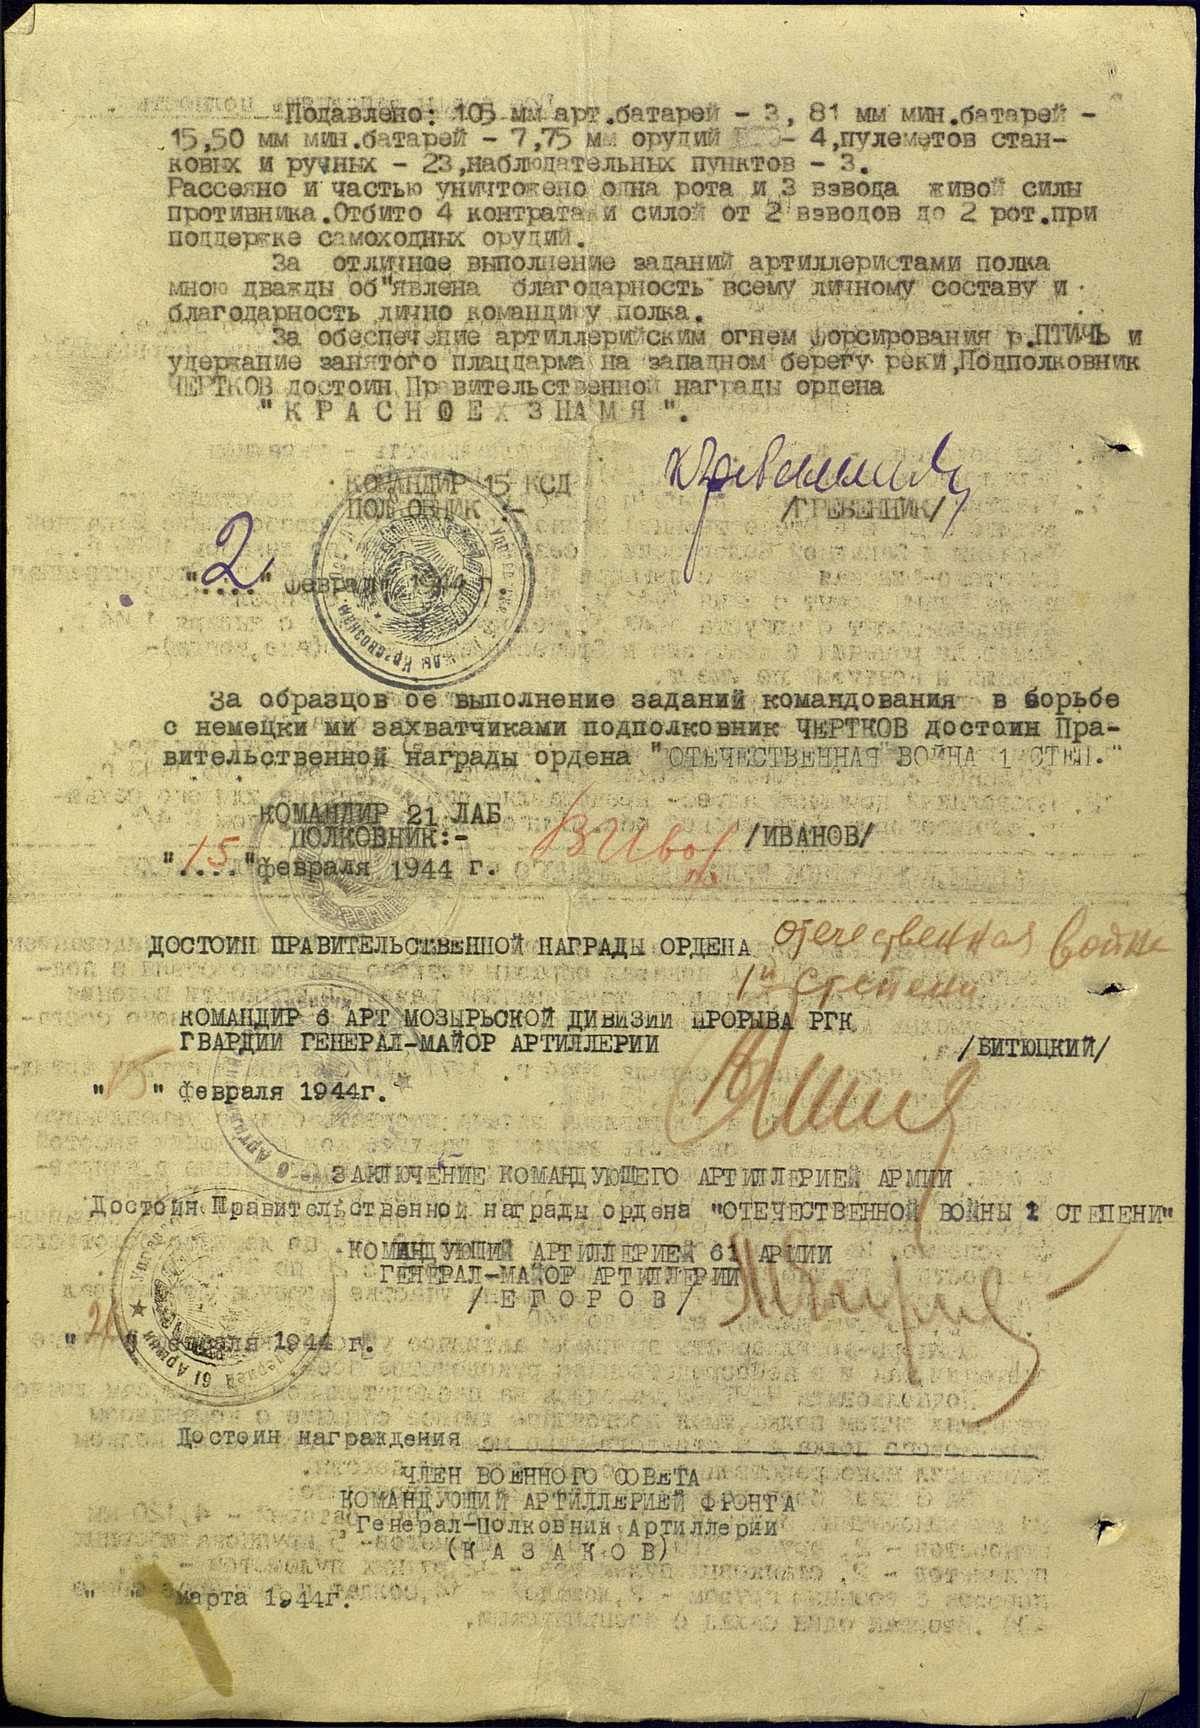 Подавлено: 105 мм арт.батарей - 3, 81 мм мин.батарей -
15,50 мм мин.батарей - 7,75 мм орудий - 4,пулеметов стан-
ковых и ручных - 23,наблюдательных пунктов - 3.
Рассеяно и частью уничтожено одна рота и 3 взвода живой силы
противника.Отбито 4 контратаки силой от 2 взводов до 2 рот.при
поддержке самоходных орудий.
За отличное выполнение заданий артиллеристами полка
мною дважды об"явлена благодарность всему личному составу и
благодарность лично командиру полка.
За обеспечение артиллерийским огнем форсирования р.ПТИЧЬ и
удержание занятого плацдарма на западном берегу реки,Подполковник
ЧЕРТКОВ достоин Правительственной награды ордена
"КРАСНОЕ ЗНАМЯ".
КОМАНДИР 15 КСД
ПОЛКОВНИК :-
/ГРЕБЕННИК/
"2" февраля 1944 г.
За образцов ое выполнение заданий командования в борьбе
с немецки ми захватчиками подполковник ЧЕРТКОВ достоин Пра-
вительственной награды ордена "ОТЕЧЕСТВЕННАЯ ВОЙНА 1 СТЕП."
КОМАНДИР 21 ЛАБ
ПОЛКОВНИК:-
/ИВАНОВ/
"15" февраля 1944 г.
ДОСТОИН ПРАВИТЕЛЬСТВЕННОЙ НАГРАДЫ ОРДЕНА отечественная война
1й степени
КОМАНДИР 6 АРТ МОЗЫРЬСКОЙ ДИВИЗИИ ПРОРЫВА РГК
ГВАРДИИ ГЕНЕРАЛ-МАЙОР АРТИЛЛЕРИИ
/БИТЮЦКИЙ/
"15" февраля 1944г.
ЗАКЛЮЧЕНИЕ КОМАНДУЮЩЕГО АРТИЛЛЕРИЕЙ АРМИИ
Достоин Правительственной награды ордена "ОТЕЧЕСТВЕННОЙ ВОЙНЫ СТЕПЕНИ"
КОМАНДУЮЩИЙ АРТИЛЛЕРИЕЙ 61 АРМИИ
ГЕНЕРАЛ-МАЙОР АРТИЛЛЕРИИ
/ЕГОРОВ/
февраля 1944 г.
Достоин награждения
ЧЛЕН ВОЕННОГО СОВЕТА
КОМАНДУЮЩИЙ АРТИЛЛЕРИЕЙ ФРОНТА
Генерал-Полковник Артиллерии
(КАЗАКОВ)
" " марта 1944г.